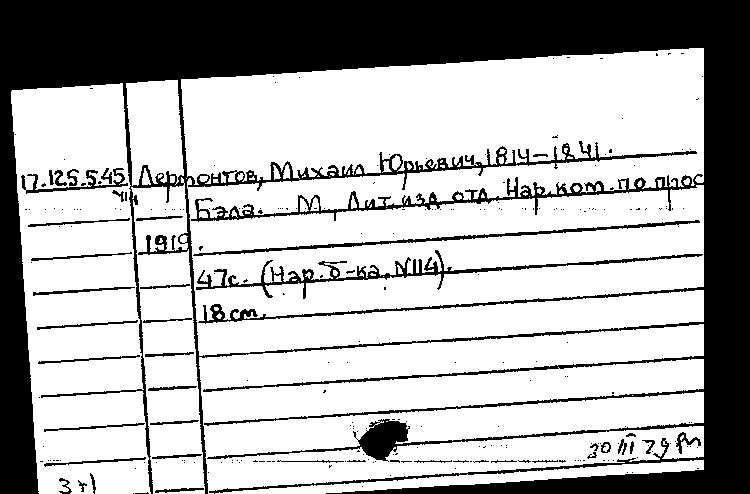 17.125.5.45 Лермонтов, Михаил Юрьевич, 1814-1841.
VIII
Бэла. М., Лит. изд. отд. Нар. ком. по прос
1919.
47с. (Нар. б-ка. N114).
18 cm.
30 III 29
3+1